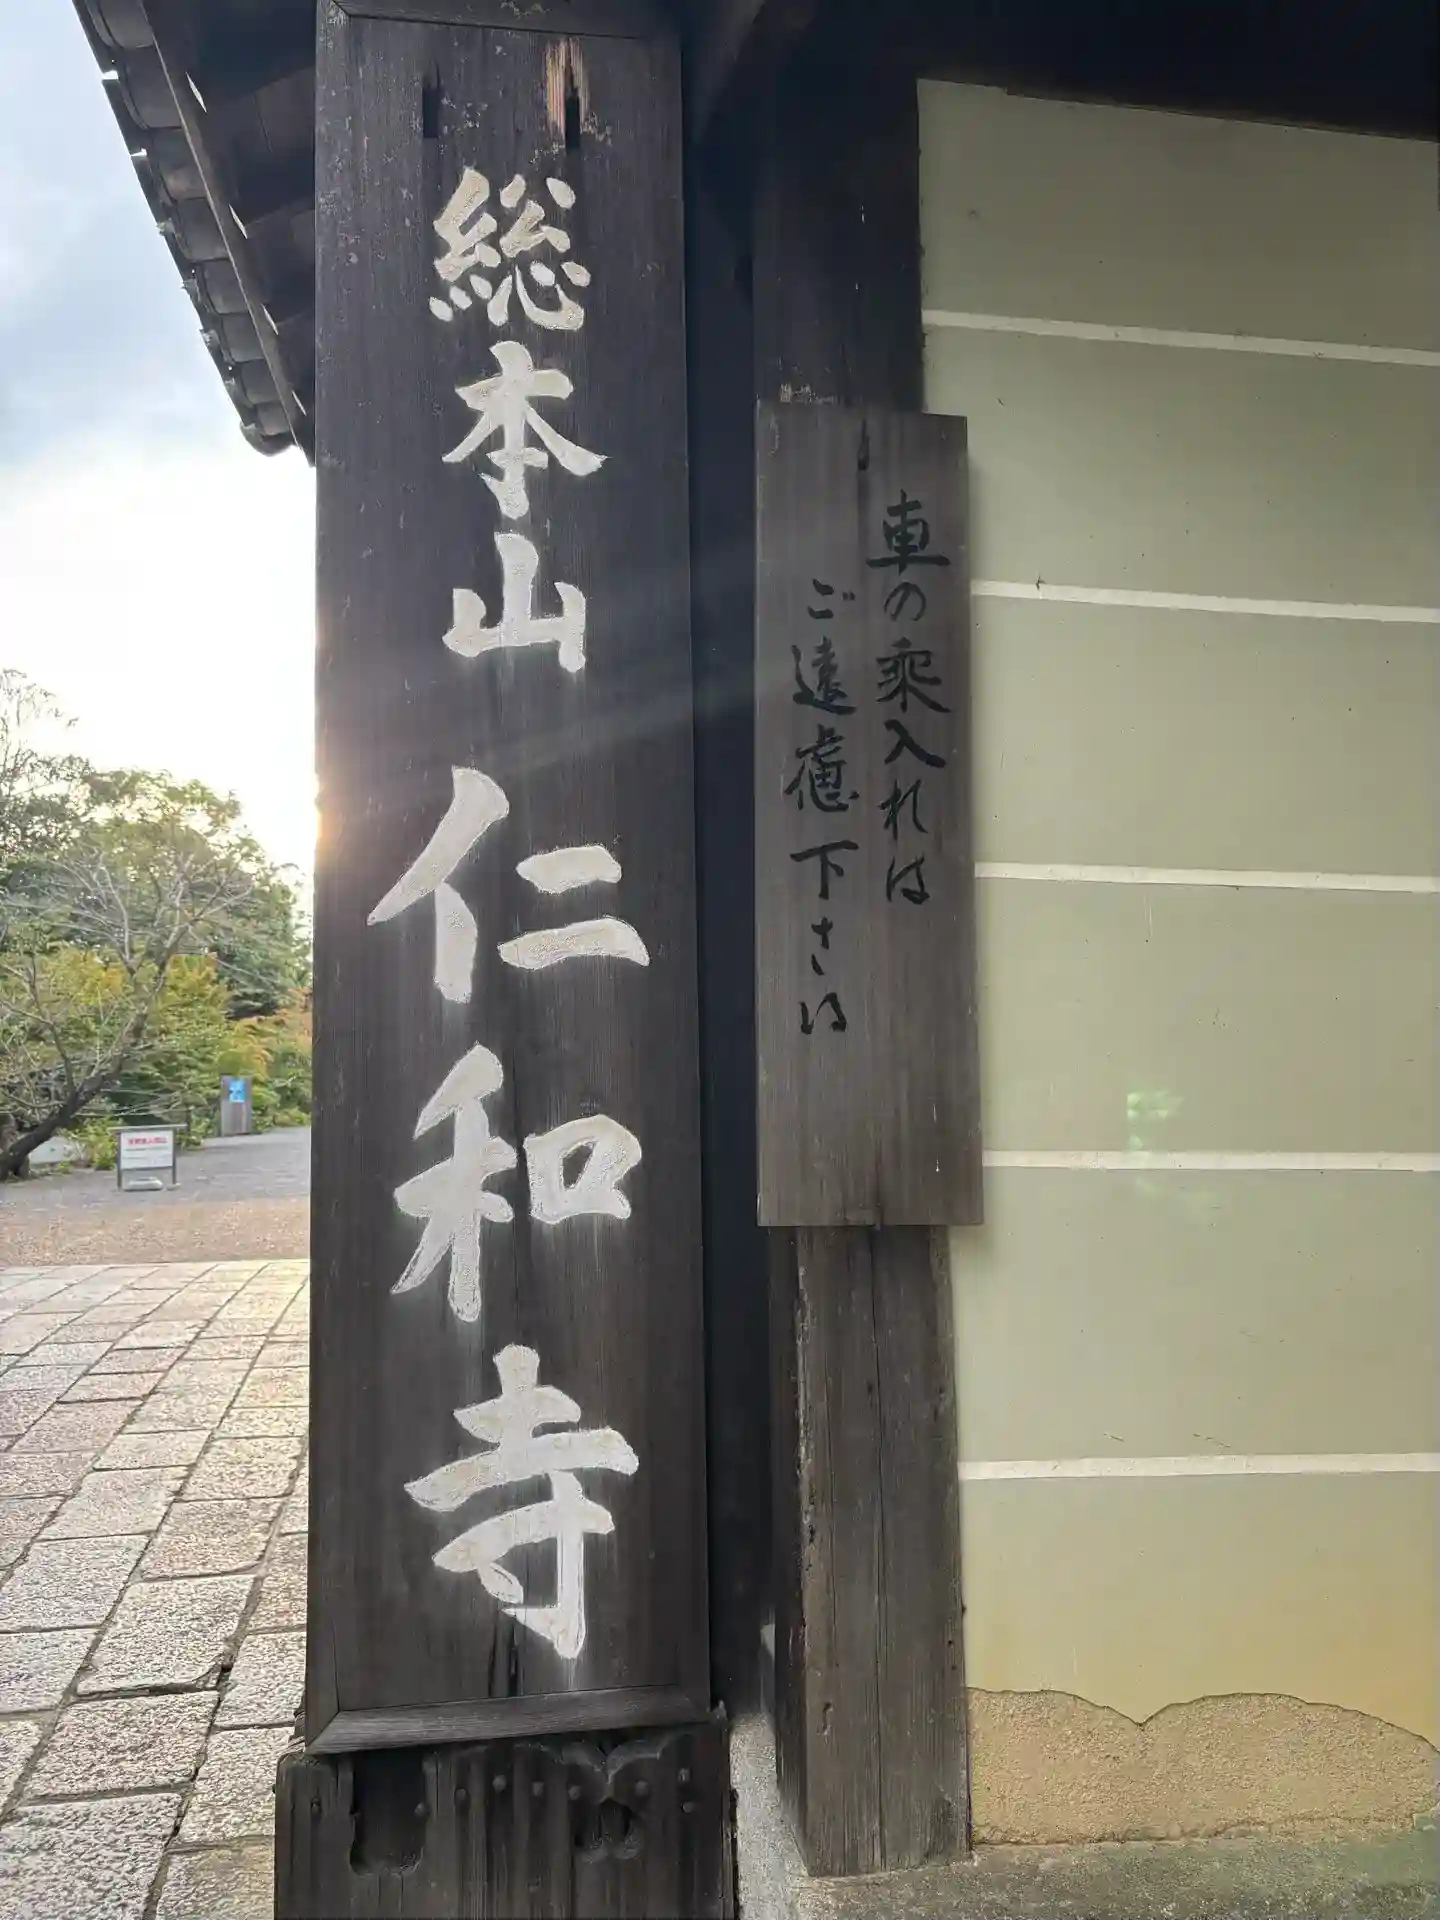 総本山 仁和寺
車の乗入れは
ご遠慮下さい